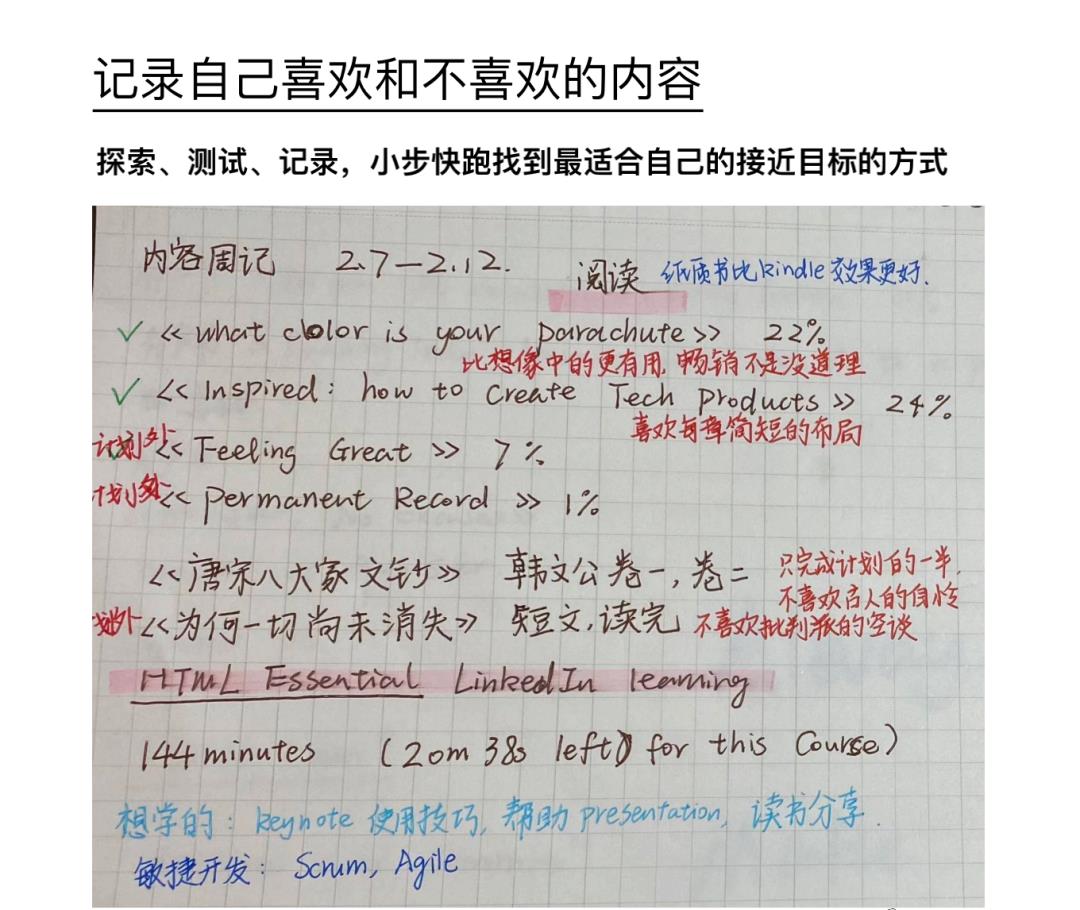 记录自己喜欢和不喜欢的内容
探索、测试、记录，小步快跑找到最适合自己的接近目标的方式
内容周记 2.7—2.12.
阅读 纸质书比kindle效果更好.
✓ << what color is your parachute>> 22%
比想像中的更有用, 畅销不是没道理
✓ << Inspired: how to create Tech products >> 24%
喜欢每章简短的布局
计划外 << Feeling Great >> 7%
计划外 << permanent Record >> 1%
<<唐宋八大家文钞>> 韩文公卷一, 卷二 只完成计划的一半,
不喜欢古人的自怜
计划外 <<为何一切尚未消失>> 短文, 读完 不喜欢批判派的空谈
HTML Essential LinkedIn learning
144 minutes (20m 38s left for this Course)
想学的: keynote 使用技巧, 帮助 presentation, 读书分享.
敏捷开发: Scrum, Agile